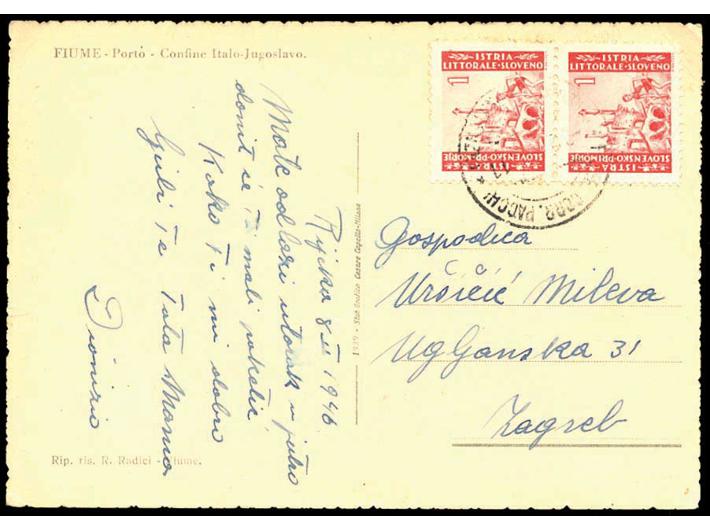 FIUME - Porto - Confine Italo-Jugoslavo.
ISTRIA
LITTORALE-SLOVENO
1
ISTRA
SLOVENSKO PRIMORJE
ISTRIA
LITTORALE-SLOVENO
1
ISTRA
SLOVENSKO PRIMORJE
CORR. PACCHI
Rijeka 8 II 1946
Mate odlazi utorak u jutro
donit će ti mali paketić
Kako ti mi dobro
ljubi te Tata Mama
Dionizio
1339 - Stab. Grafico Cesare Capello - Milano
Gospodica
Uršičić Mileva
Ugljanska 31
Zagreb
Rip. ris. R. Radici - Fiume.